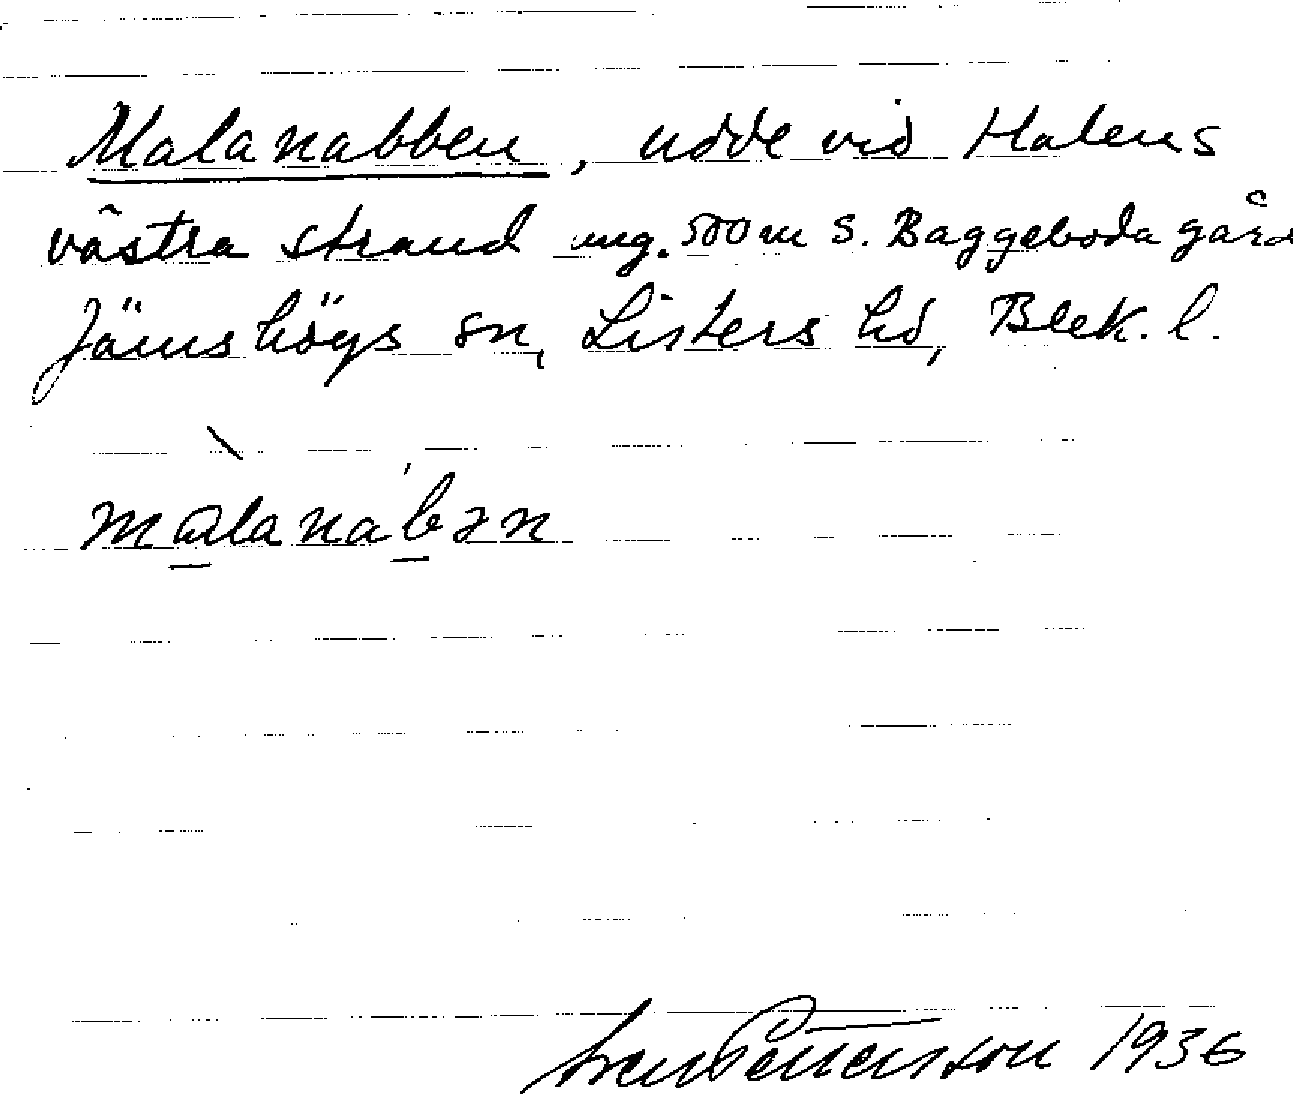 Malanabben, udde vid Halens
västra strand ung. 500 m S. Baggeboda gård
Jämshögs sn, Listers hd, Blek. l.
mɑlanabən
Sven Pettersson 1936